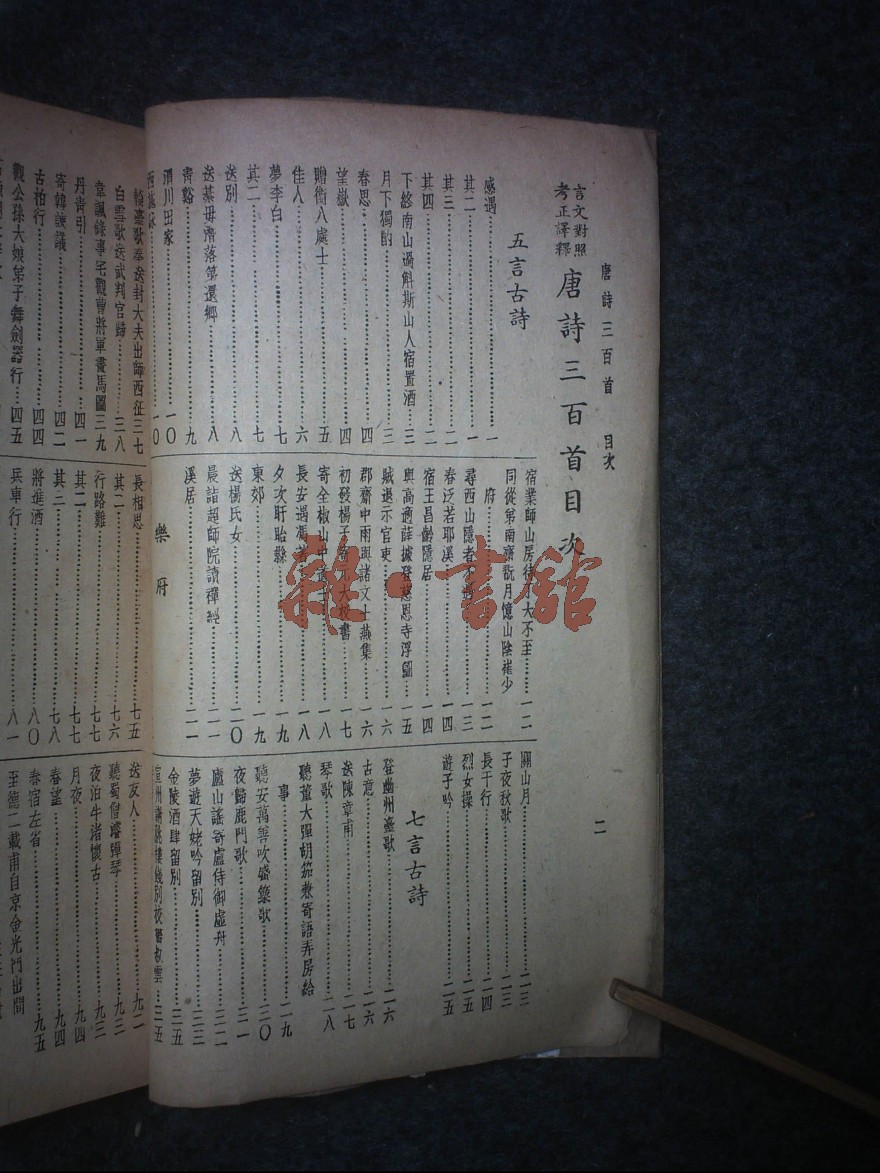 唐詩三百首 目次
二
言文對照
考正譯釋
唐詩三百首目次
五言古詩
感遇…一
其二…一
其三…二
其四…二
下終南山過斛斯山人宿置酒…三
月下獨酌…三
春思…四
望嶽…四
贈衛八處士…五
佳人…六
夢李白…七
其二…七
送別…八
送綦毋潛落第還鄉…八
青谿…九
渭川田家…一〇
西施詠…一〇
宿業師山房待丁大不至…一二
同從弟南齋翫月憶山陰崔少
府…一二
尋西山隱者不遇…一三
春泛若耶溪…一四
宿王昌齡隱居…一四
與高適薛據登慈恩寺浮圖…一五
賊退示官吏…一六
郡齋中雨與諸文士燕集…一六
初發揚子寄元大校書…一七
寄全椒山中道士…一八
長安遇馮著…一八
夕次盱眙縣…一九
東郊…一九
送楊氏女…二〇
晨詣超師院讀禪經…二一
溪居…二一
樂府
關山月…二三
子夜秋歌…二三
長干行…二四
烈女操…二五
遊子吟…二五
七言古詩
登幽州臺歌…二六
古意…二六
送陳章甫…二七
琴歌…二八
聽董大彈胡笳兼寄語弄房給
事…二九
聽安萬善吹觱篥歌…三〇
夜歸鹿門歌…三一
廬山謠寄盧侍御虛舟…三二
夢遊天姥吟留別…三三
金陵酒肆留別…三五
宣州謝朓樓餞別校書叔雲…三五
輪臺歌奉送封大夫出師西征三七
白雪歌送武判官歸…三八
韋諷錄事宅觀曹將軍畫馬圖三九
丹青引…四一
寄韓諫議…四二
古柏行…四四
觀公孫大娘弟子舞劍器行…四五
長相思…七五
其二…七六
行路難…七七
其二…七七
其三…七八
將進酒…八〇
兵車行…八一
送友人…九二
聽蜀僧濬彈琴…九二
夜泊牛渚懷古…九三
月夜…九四
春望…九四
春宿左省…九五
至德二載甫自京金光門出間
雜·書館